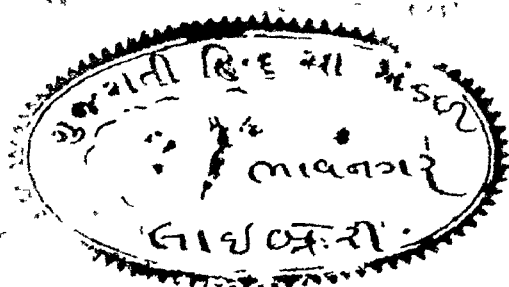 ગુજરાતી હિન્દ સ્ત્રી મંડળ
ભાવનગર
લાઇબ્રેરી